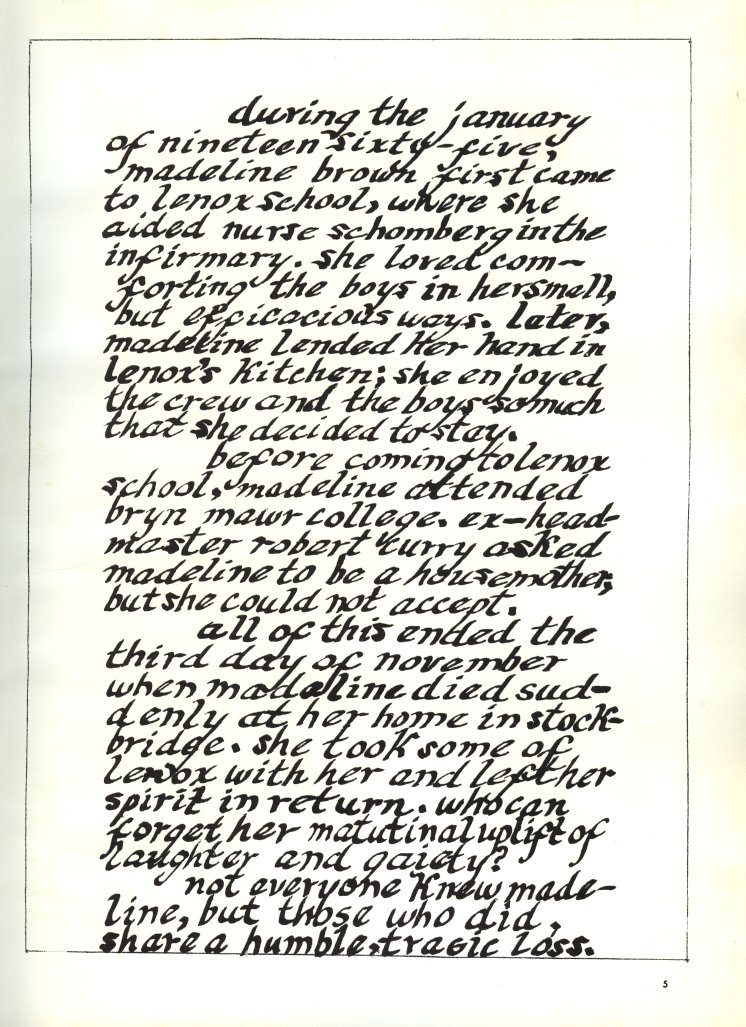 during the january
of nineteen sixty-five,
madeline brown first came
to lenox school, where she
aided nurse schomberg in the
infirmary. she loved com-
forting the boys in her small,
but efficacious ways. later,
madeline lended her hand in
lenox's kitchen; she enjoyed
the crew and the boys so much
that she decided to stay.
before coming to lenox
school, madeline attended
bryn mawr college. ex-head-
master robert curry asked
madeline to be a housemother,
but she could not accept.
all of this ended the
third day of november
when madeline died sud-
denly at her home in stock-
bridge. she took some of
lenox with her and left her
spirit in return. who can
forget her matutinal uplift of
laughter and gaiety?
not everyone knew made-
line, but those who did,
share a humble, tragic loss.
5